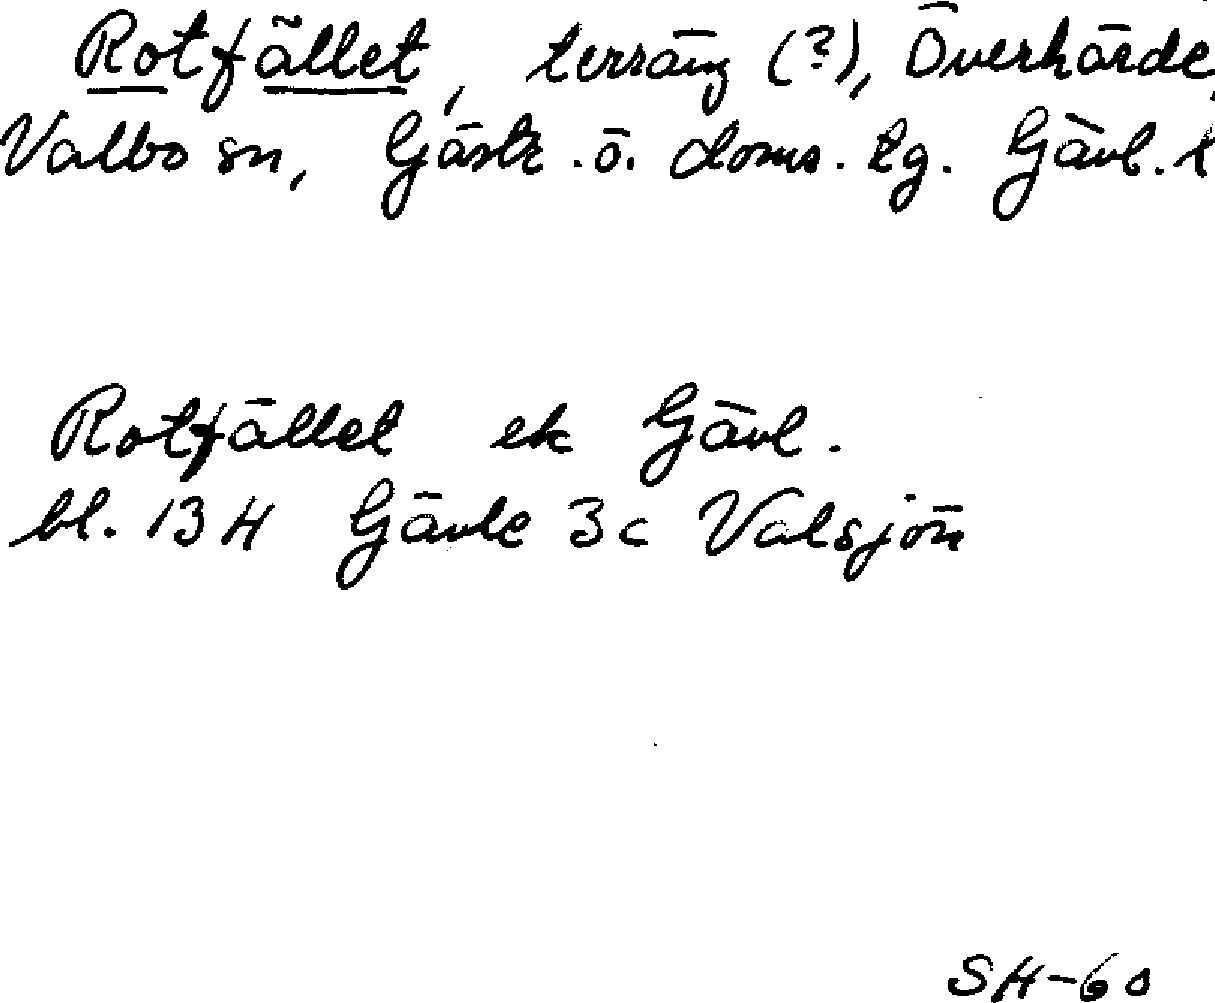 Rotfället, terräng (?), Överhärde,
Valbo sn, Gästr. ö. doms. tg. Gävl. l
Rotfället ek Gävl.
bl. 13 H Gävle 3c Valsjön
SH-60